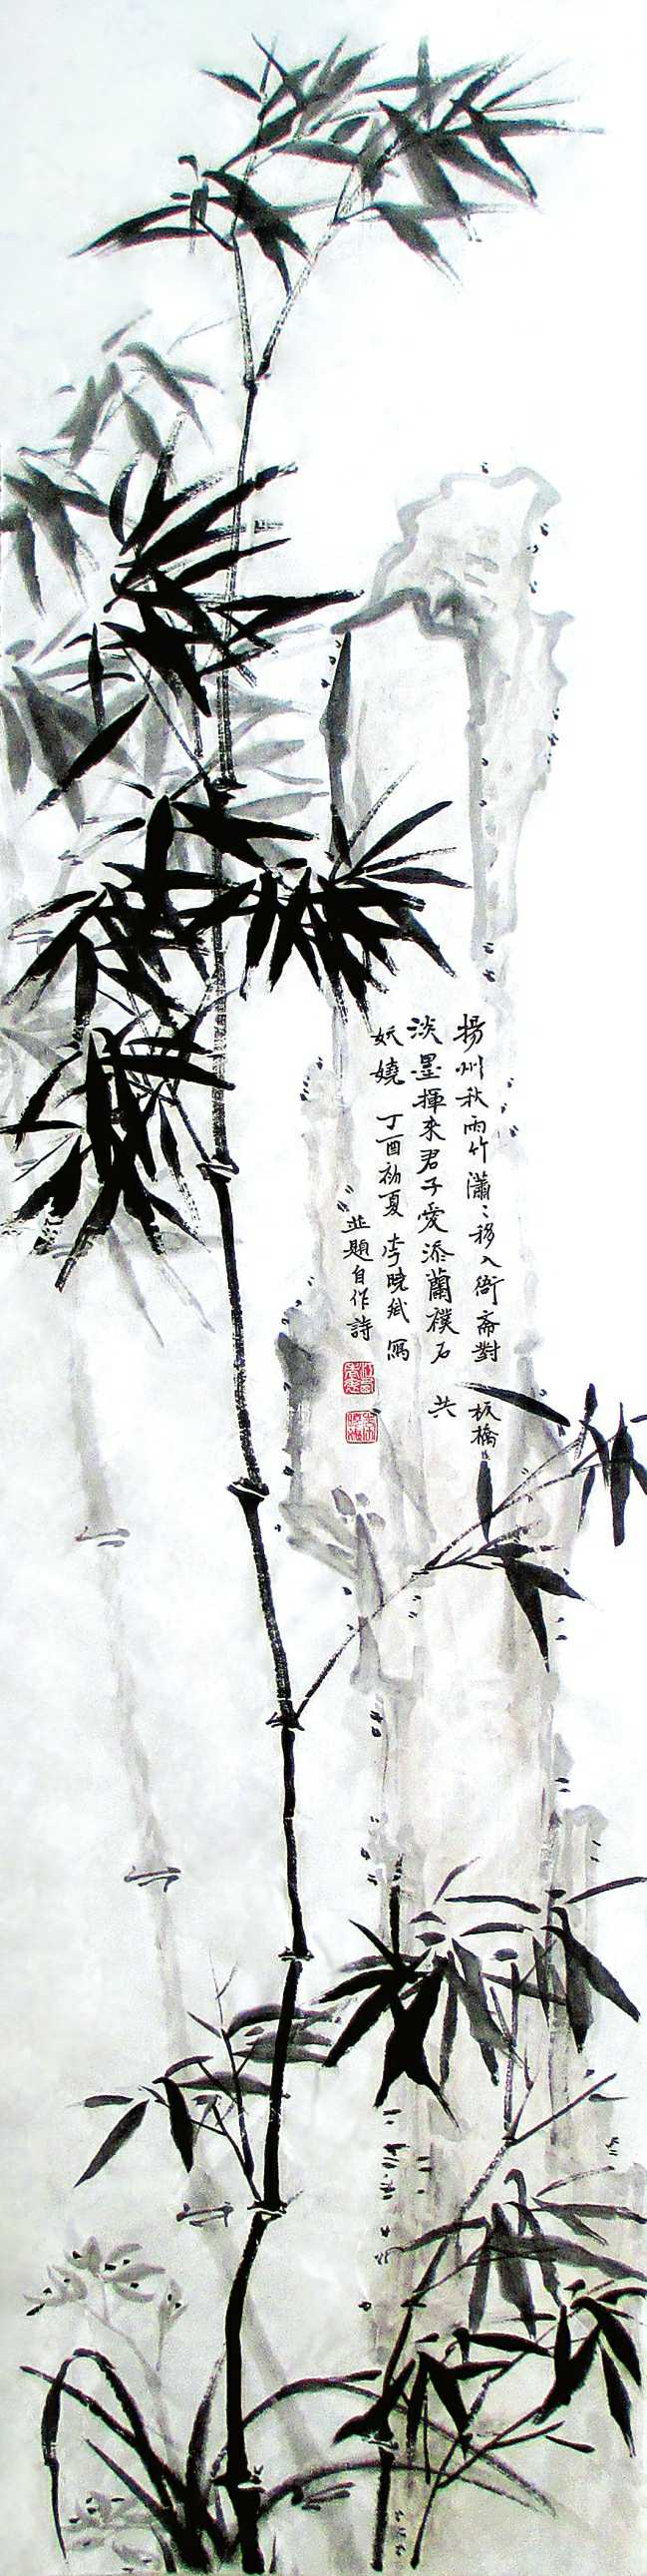 揚州秋雨竹瀟〻移入衙齋對板橋
淡墨揮來君子愛添蘭襆石共
妖嬈 丁酉初夏 李曉斌 寫
並題自作詩